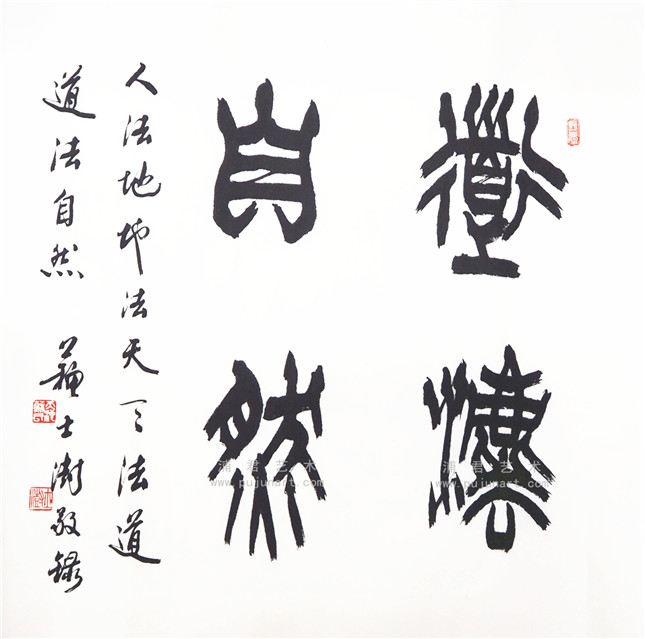 道法
自然
人法地地法天天法道
道法自然 蘇士澍敬録
浦君艺术
www.pujunart.com
浦君艺术
www.pujunart.com